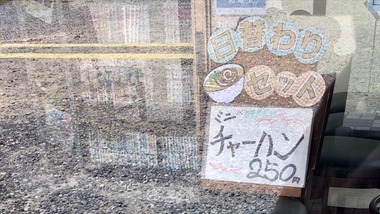 日替わり
セット
ミニ
チャーハン
250円